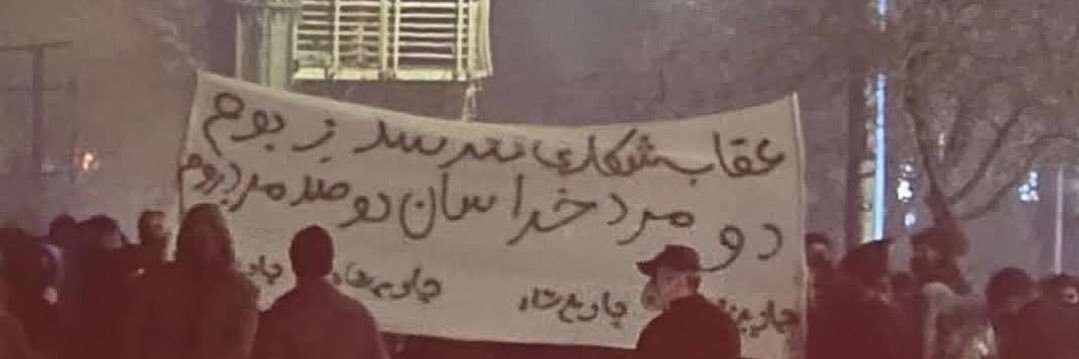 عقاب شکاری نترسد ز بوم
دو مرد خراسان دو صد مرد روم
جاوید شاه جاوید شاه